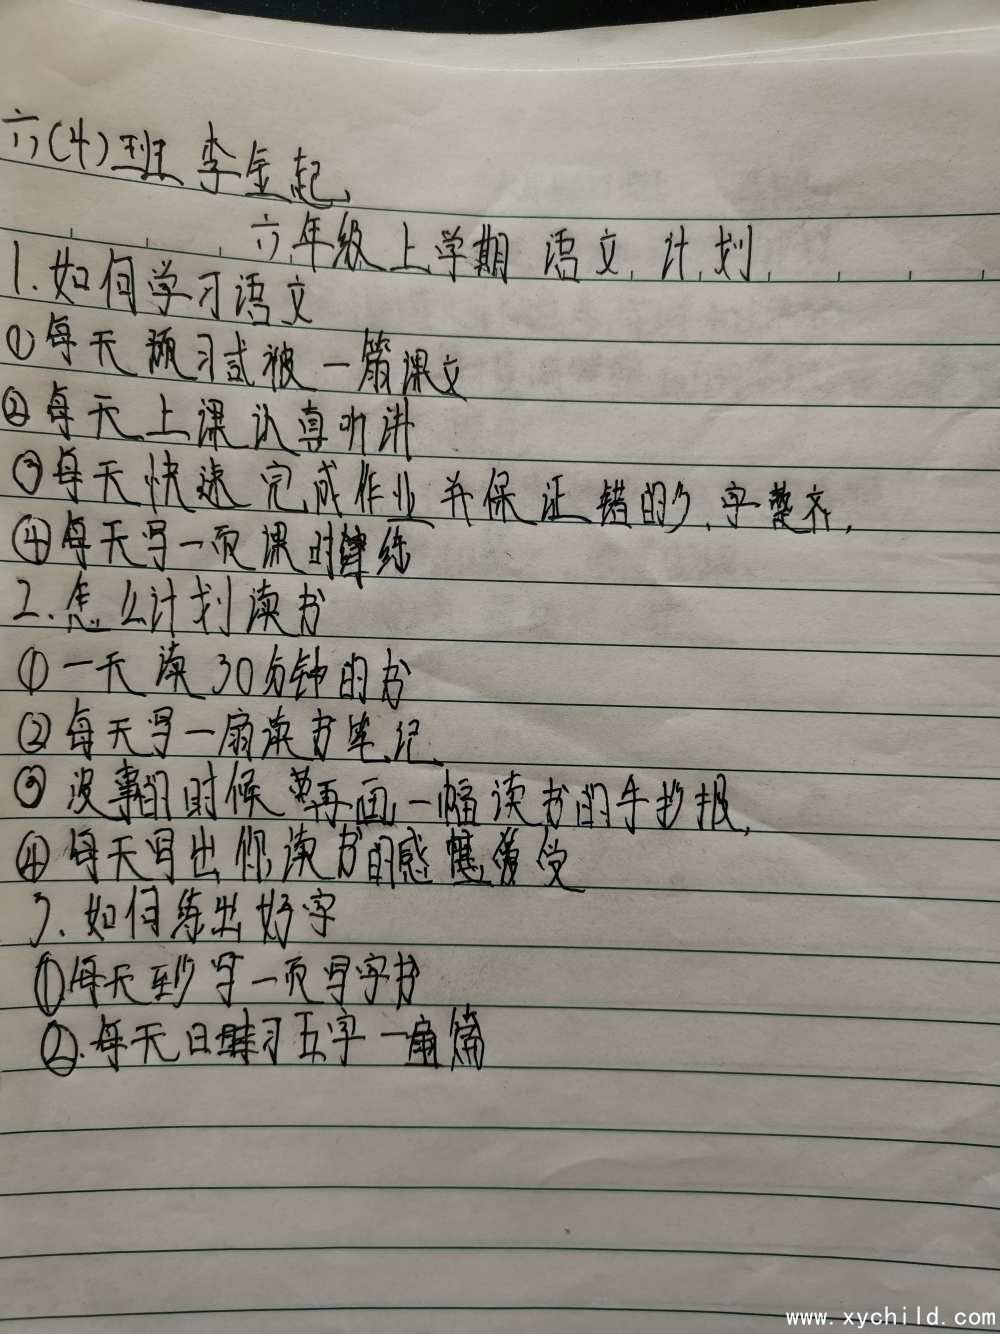 六(4)班 李金起
六年级上学期 语文 计划
1.如何学习语文
①每天预习或被一篇课文
②每天上课认真听讲
③每天快速完成作业并保证错的少,字整齐,
④每天写一页课时练
2.怎么计划读书
①一天读30分钟的书
②每天写一扇读书笔记
③没事的时候再画一幅读书的手抄报,
④每天写出你读书的感受
3.如何练出好字
①每天至少写一页写字书
②.每天日练习五字一篇
www.xychild.com